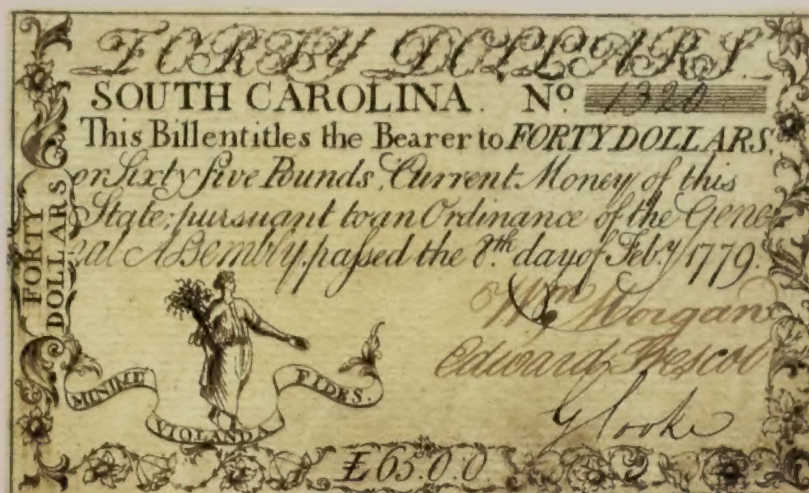 FORTY DOLLARS.
SOUTH CAROLINA. No. 1320
This Bill entitles the Bearer to FORTY DOLLARS,
or Sixty five Pounds, Current Money of this
State; pursuant to an Ordinance of the Gene-
ral Assembly, passed the 8.th day of Feb.y 1779.
FORTY
DOLLARS
Wm Morgan
Edward Trescot
G Cooke
MINIME VIOLANDA FIDES.
£65.0.0